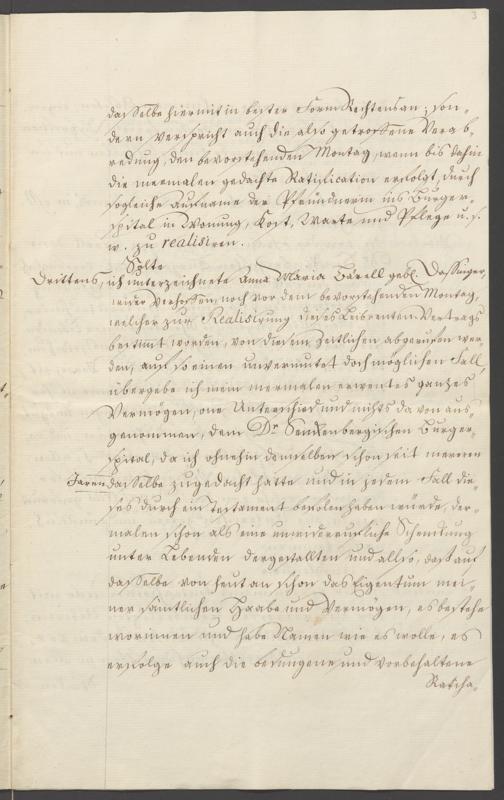 3
dasselbe hiermit in bester Form Rechtens an; son-
dern verspricht auch die also getroffene Verab-
redung, den bevorstehenden Montag, wenn bis dahin
die mermalen gedachte Ratification erfolgt, durch
sogleiche Aufname der Pfründnerin ins Burger-
spital in Wonung, Kost, Warte und Pflege u. s.
w. zu realisiren.
Drittens, Solte
ich unterzeichnete Anna Maria Barell geb.
wider Verhoffen, noch vor dem bevorstehenden Montag,
welcher zur Realisirung dieses Leibrenten-Vertrags
bestimt worden, von diesem Zeitlichen abgerufen wer-
den, auf so einen unvermutet doch möglichen Fall,
übergebe ich mein mermalen erwentes ganzes
Vermögen, one Unterschied und nichts davon aus-
genommen, dem Dr. Senkenbergischen Burger-
spital, da ich ohnehin demselben schon seit mereren
Jaren dasselbe zugedacht hatte und in jedem Fall die-
ses durch ein Testament befolen haben würde, der-
malen schon als eine unwiderrufliche Schenkung
unter Lebenden dergestallten und also, dass auf
dasselbe von heut an schon das Eigentum mei-
ner sämtlichen Haabe und Vermögen, es bestehe
worinnen und habe Namen wie es wolle, es
erfolge auch die bedungene und vorbehaltene
Ratiha-